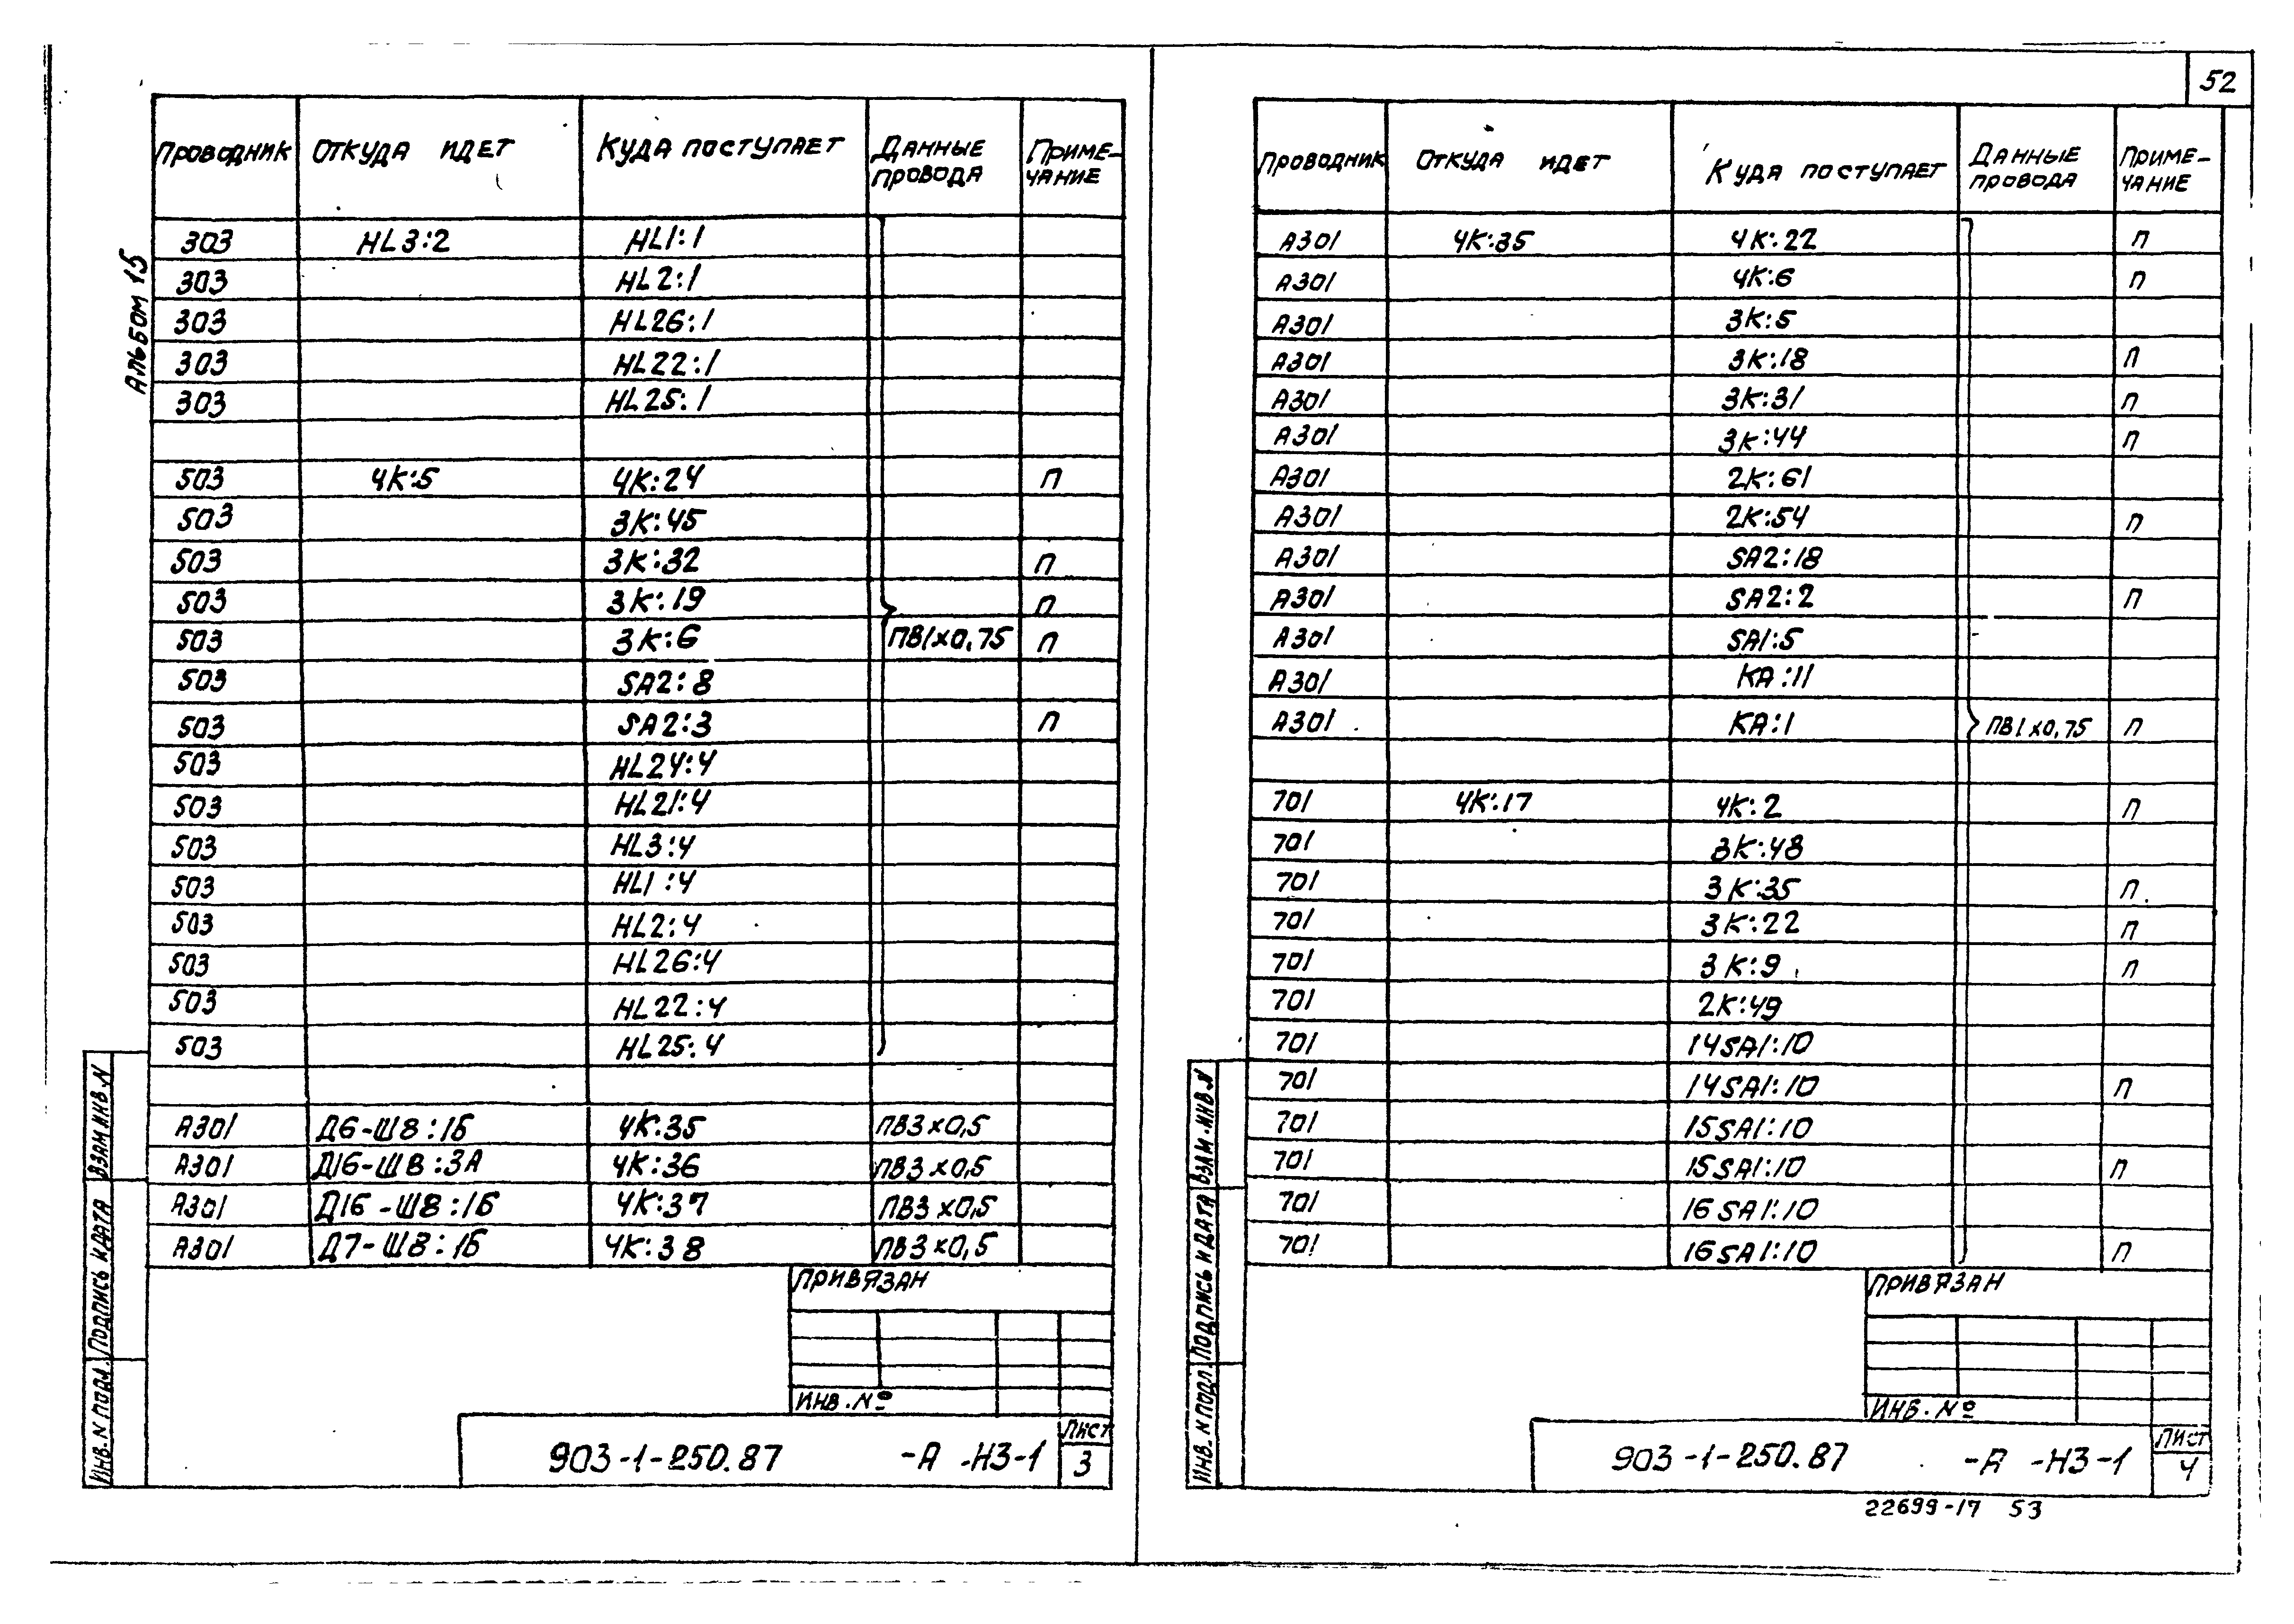 52
Альбом 15
Проводник Откуда идет Куда поступает Данные провода Приме-чание
303 HL3:2 HL1:1
303 HL2:1
303 HL26:1
303 HL22:1
303 HL25:1
503 4К:5 4К:24 П
503 3К:45
503 3К:32 П
503 3К:19 П
503 3К:6 ПВ1х0,75 П
503 SA2:8
503 SA2:3 П
503 HL24:4
503 HL21:4
503 HL3:4
503 HL1:4
503 HL2:4
503 HL26:4
503 HL22:4
503 HL25:4
А301 Д6-Ш8:1Б 4К:35 ПВ3х0,5
А301 Д16-Ш8:3А 4К:36 ПВ3х0,5
А301 Д16-Ш8:1Б 4К:37 ПВ3х0,5
А301 Д7-Ш8:1Б 4К:38 ПВ3х0,5
Привязан
Инв. №
903-1-250.87 -А -НЗ-1 Лист 3
Инв. N подл. Подпись и дата Взам инв. N
Проводник Откуда идет Куда поступает Данные провода Приме-чание
А301 4К:35 4К:22 П
А301 4К:6 П
А301 3К:5
А301 3К:18 П
А301 3К:31 П
А301 3К:44 П
А301 2К:61
А301 2К:54 П
А301 SA2:18
А301 SA2:2 П
А301 SA1:5
А301 КА:11
А301 КА:1 ПВ1х0,75 П
701 4К:17 4К:2 П
701 3К:48
701 3К:35 П
701 3К:22 П
701 3К:9 П
701 2К:49
701 14SA1:10
701 14SA1:10 П
701 15SA1:10
701 15SA1:10 П
701 16SA1:10
701 16SA1:10 П
Привязан
Инв. №
903-1-250.87 -А -НЗ-1 Лист 4
Инв. N подл. Подпись и дата Взам. инв. N
22699-17 53